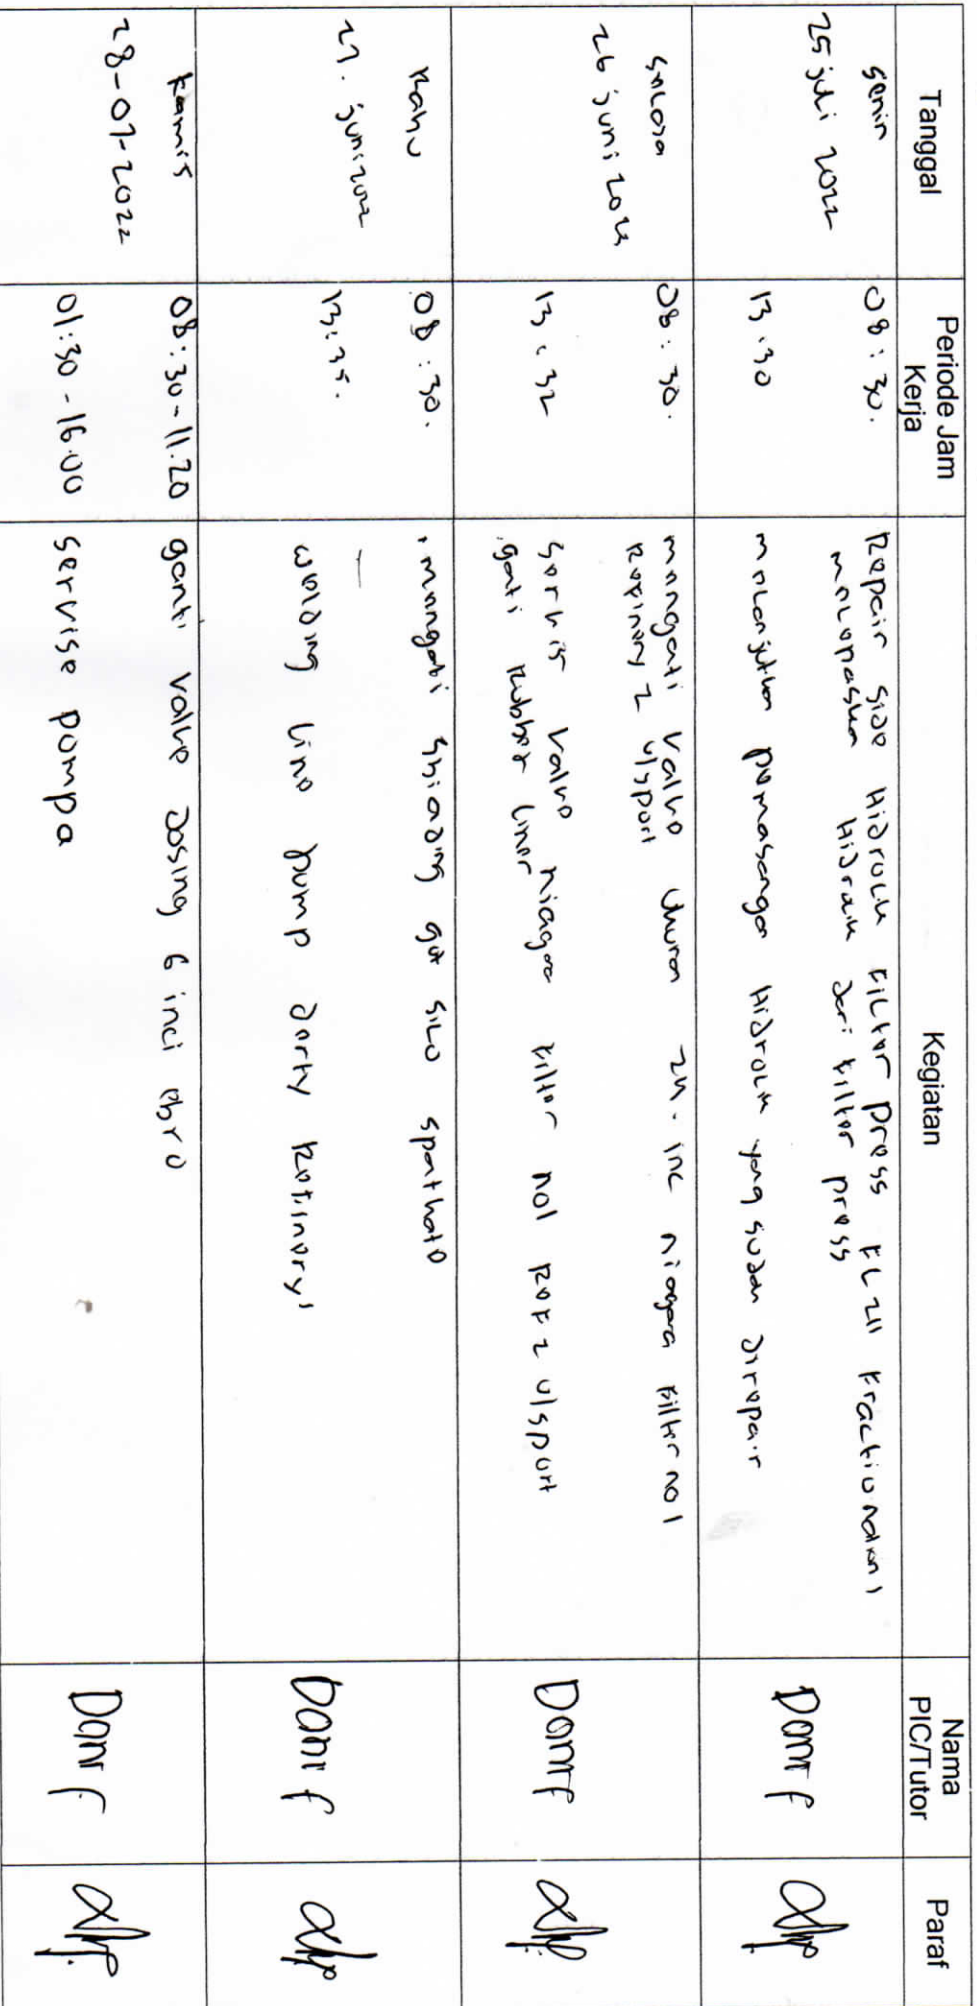 Tanggal
Periode Jam Kerja
Kegiatan
Nama PIC/Tutor
Paraf
Senin
25 juli 2022
08:30.
13.30
Repair Side Hidrolik Filter press FL 211 Fractionation 1
melepaskan Hidrolik dari Filter press
melanjutkan pemasangan Hidrolik yang sudah direpair
Dani f
Selasa
26 juni 2022
08:30.
13.32
mengati valve ukuran 24. inc niagara Filter no 1
Refinery 2 u/sport
Servis valve niagara Filter no 1 REF 2 u/sport
gati Rubber liner
Dani f
Rabu
27. juni 2022
08:30.
13:35.
mengati shiading gat silo spathate
welding line pump derty Refinery 1
Dani f
Kamis
28-07-2022
08:30-11.20
01:30-16.00
ganti valve dosing 6 inci
servise pompa
Dani f